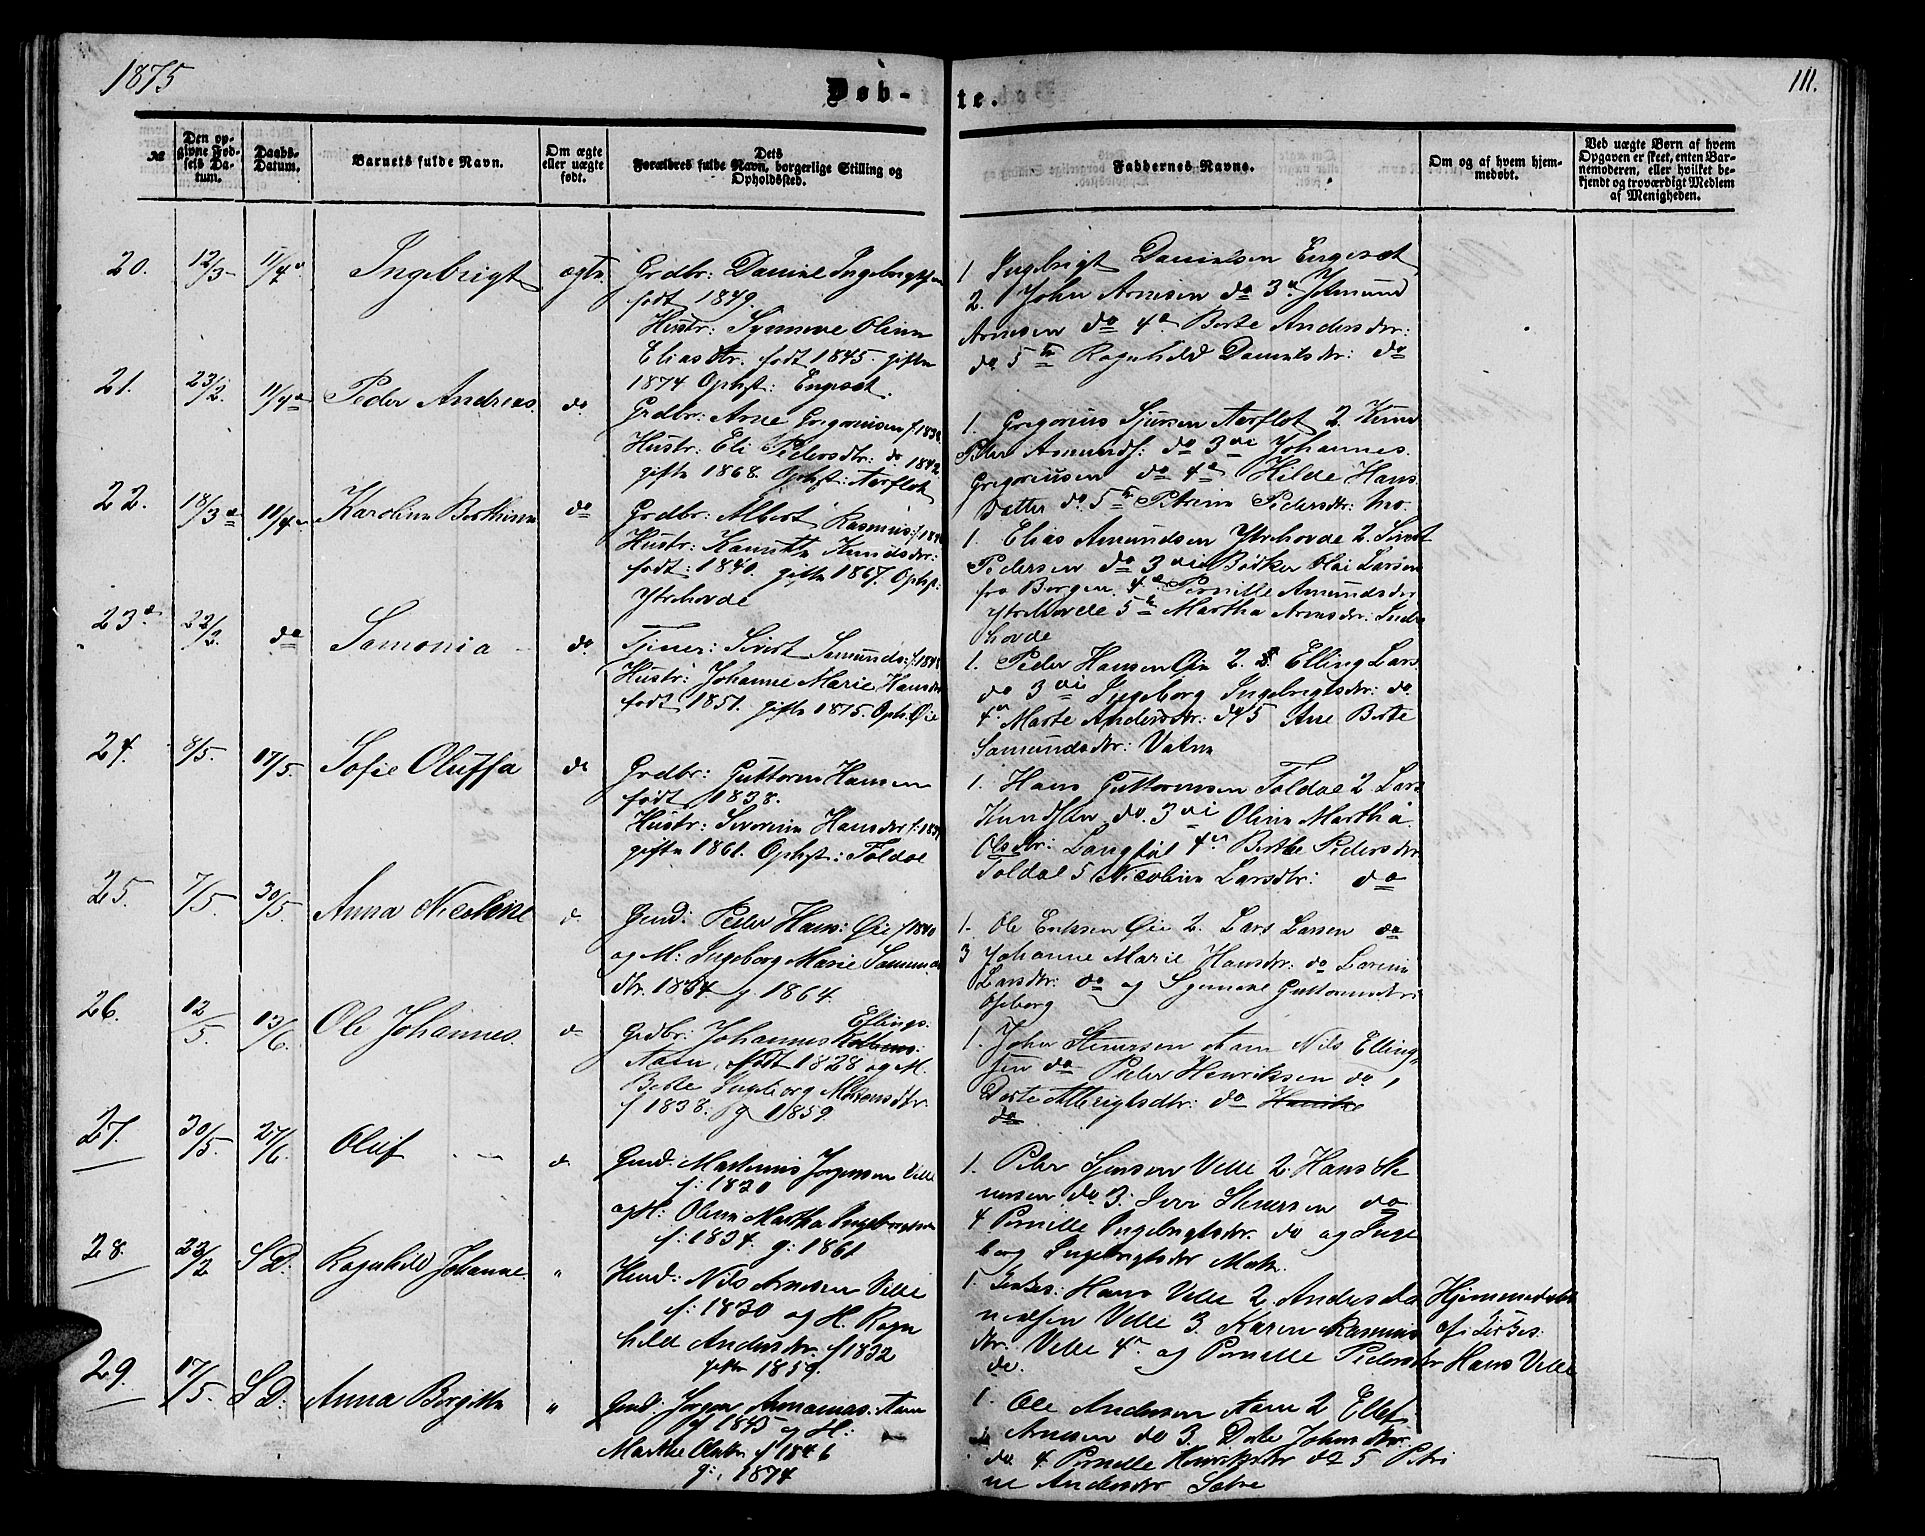 1875
Døb-te.
111.
№
Den opgivne Fødsels Datum.
Daabs-Datum.
Barnets fulde Navn.
Om ægte eller uægte født.
Dets Forældres fulde Navn, borgerlige Stilling og Opholdssted.
Faddernes Navne.
Om og af hvem hjemmedøbt.
Ved uægte Børn af hvem Opgaven er skeet, enten Barnemoderen, eller hvilket bekjendt og troværdigt Medlem af Menigheden.
20. 12/3 11/4 Ingebrigt ægte
Grdbr: Daniel Ingebrigtsen
født 1849.
Hustr: Synneve Oline
Eliasdtr. født 1845. gifte
1874 Ophst: Engeset.
1. Ingebrigt Danielsen Engeset
2. John Arnesen do 3 Amund
Arnesen do 4 Berte Andersdtr:
do 5 Ragnhild Danielsdtr: do
21. 23/2. 11/4 Peder Andreas. do
Grdbr: Arne Gregoriusen f. 183
Hustr: Eli Pedersdtr: do 1842
gifte 1868. Ophst: Aarflot
1. Gregorius Sjursen Aarflot 2. Knud
Peder Amunds: do 3 Johannes
Gregoriusen do 4 Hilde Hans
Datter do. 5 Petrine Pedersdtr:
22. 18/3 11/4 Karoline Berthine do
Grdbr: Albert Rasmus: f. 184
Hustr: Knudsdtr:
født: 1840. gifte 1867. Ophst:
Ytrehovde
1. Elias Amundsen Ytrehovde 2. Sivert
Pedersen do 3 Bødker Larsen
fra Bergen. 4 Pernille Amundsdtr
Ytrehovde 5 Martha Arnesdtr. Indre
hovde
23 22/3. do Samonia do
Tjener: Sivert Samunds: f. 184
Hustr: Johanne Marie Hansdtr
født 1851. gifte 1875. Oph. Øie
1. Peder Hansen Øie 2. Elling Lars.
do 3 Ingeborg Ingebrigtsdtr: do.
4. Marte Andersdtr: do 5 Ane Berte
Samundsdtr: Vatne
24. 8/5. 17/5. Sofie Oluffa do
Grdbr: Guttorm Hansen
født 1838.
Hustr: Severine Hansdtr f. 183
gifte 1861. Ophst: Foldal
1. Hans Guttormsen Foldal 2 Lars
Knudsen do. 3 Oline Martha
Olsdtr: 4 Berthe Pedersdtr
Foldal 5 Nicoline Larsdtr: do
25. 7/5. 30/5. Anna Nicoline d.
Gmd: Peder Hans: Øie f 1840
og M: Ingeborg Marie Samunds
dtr. 1834 g 1864.
1. Ole Eriksen Øie 2. Lars Larsen do
3 Johanne Marie Hansdtr: do Larine
Larsdtr: do og Synneve Guttormsdtr:
Osborg
26. 12/5 13/6. Ole Johannes. d
Ellings.
Grdbr: Johannes
Aam, født 1828 og M.
Berte Ingeborg Mortensdtr.
f 1838. g 1859
1. John Stenersen Aam Nils Elling
sen do Peder Henriksen do,
Dorte Albrigtsdtr: do
do
27. 30/5. 27/6. Oluf d.
Gmd. Martinus Jørgensen Velle
f: 1820
og H: Oline Martha
f: 1834. g: 1861
1. Peder Sjursen Velle 2. Hans Ste
nersen do 3. Iver Stenersen do
4 Pernille Ingebrigtsdtr. do og Inge
borg Ingebrigtsdtr
28. 22/2 S D. Ragnhild Johanne. "
Hmd: Nils Arnesen Velle
f: 1830 og H. Ragn
hild Andersdtr. f 1832
gifte 1859.
1. Hans Velle 2 Anders Da
nielsen Velle 3. Karen Rasmus
dtr. Velle 4 og Pernille Pedersdtr
do.
Hjemmedøbt
af
Hans Velle
29. 17/5. S D: Anna Bergitte "
Gmd: Jørgen Aam
f 1845 og H:
Marthe Olsdtr f 1846
g: 1874
1. Ole Andersen Aam 2 Ellef
Arnesen do 3. Johnsdtr:
do 4 Pernille Henriksdtr do 5 Petri
ne Andersdtr Sætre